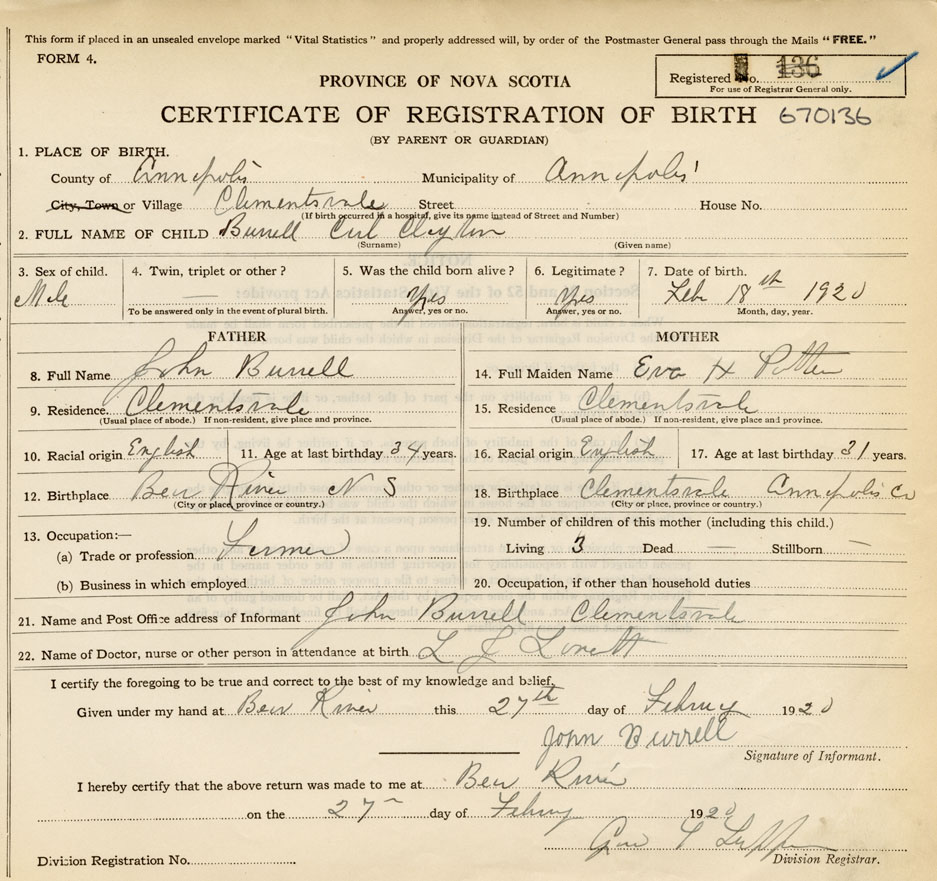 This form if placed in an unsealed envelope marked "Vital Statistics" and properly addressed will, by order of the Postmaster General pass through the Mails "FREE."
FORM 4.
PROVINCE OF NOVA SCOTIA
Registered No. 136
For use of Registrar General only.
CERTIFICATE OF REGISTRATION OF BIRTH 670136
(BY PARENT OR GUARDIAN)
1. PLACE OF BIRTH.
County of Annapolis Municipality of Annapolis
City, Town or Village Clementsvale Street House No.
(If birth occurred in a hospital, give its name instead of Street and Number)
2. FULL NAME OF CHILD Burrell Clayton
(Surname) (Given name)
3. Sex of child. 4. Twin, triplet or other? 5. Was the child born alive? 6. Legitimate? 7. Date of birth.
Male — Yes Yes Feb 18th 1920
To be answered only in the event of plural birth. Answer, yes or no. Answer, yes or no. Month, day, year.
FATHER MOTHER
8. Full Name John Burrell 14. Full Maiden Name Eva H Potter
9. Residence. Clementsvale 15. Residence Clementsvale
(Usual place of abode.) If non-resident, give place and province. (Usual place of abode.) If non-resident, give place and province.
10. Racial origin English 11. Age at last birthday 34 years. 16. Racial origin English 17. Age at last birthday 31 years.
12. Birthplace Bear River N S 18. Birthplace Clementsvale Annapolis Co
(City or place, province or country.) (City or place, province or country.)
13. Occupation:— 19. Number of children of this mother (including this child.)
(a) Trade or profession Farmer Living 3 Dead — Stillborn —
(b) Business in which employed 20. Occupation, if other than household duties
21. Name and Post Office address of Informant John Burrell Clementsvale
22. Name of Doctor, nurse or other person in attendance at birth L J Lovett
I certify the foregoing to be true and correct to the best of my knowledge and belief.
Given under my hand at Bear River this 27th day of Februy 1920
John Burrell
Signature of Informant.
I hereby certify that the above return was made to me at Bear River
on the 27 day of Februy 1920
Division Registration No. Division Registrar.